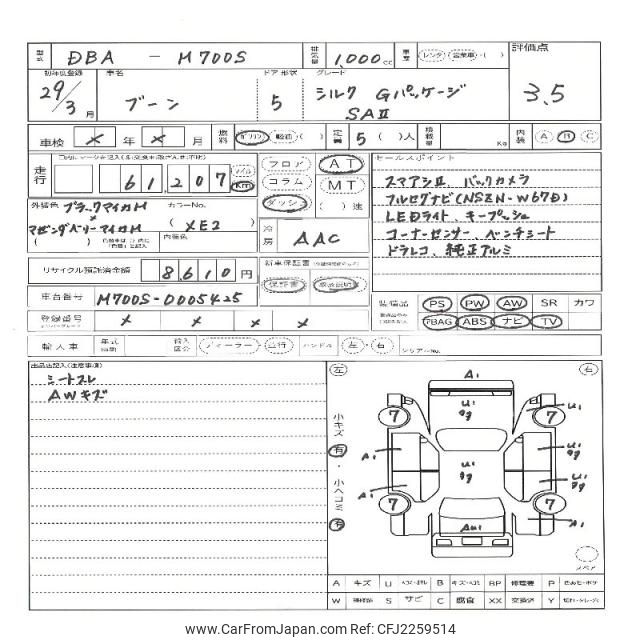 型式 DBA - M700S 排気量 1,000 cc 車歴 レンタ・営業車・( ) 評価点
初年度登録 車名 ドア 形状 グレード
29/3 月 ブーン 5 シルク Gパッケージ SAII 3.5
車検 × 年 × 月 燃料 ガソリン 軽油・( ) 定員 ( 5 )人 積載量 Kg 内装 A B C
走行 61,207 マイル Km フロア AT セールスポイント
コラム MT スマアシII、バックカメラ
ダッシュ ( )速 フルセグナビ(NSZN-W67D)
外装色 ブラックマイカM × マゼンダベリーマイカM カラーNo. ( XE2 ) LEDライト、キープッシュ
内装色 冷房 AAC コーナーセンサー、ベンチシート
ドラレコ、純正アルミ
リサイクル預託済金額 8,610 円 新車保証書
保証書 取扱説明書
車台番号 M700S-0005425 装備品 PS PW AW SR カワ
登録番号 × × × × PBAG ABS ナビ TV
輸入車 年式 輸入区分 ディーラー・並行 ハンドル 左・右 シリアルNo.
出品店記入(注意事項)
シートスレ
AWキズ
左 右
小キズ 有・小ヘコミ 有
A1
U1 gg U1
7 7
A1 U1 gg
U1 gg
A1 U1 gg
7 7
AU1 A1
スペア
A キズ U B キズ・ヘコミ BP 修理要 P
W S サビ C 腐食 XX 交換済 Y
www.CarFromJapan.com - CFJ2259514